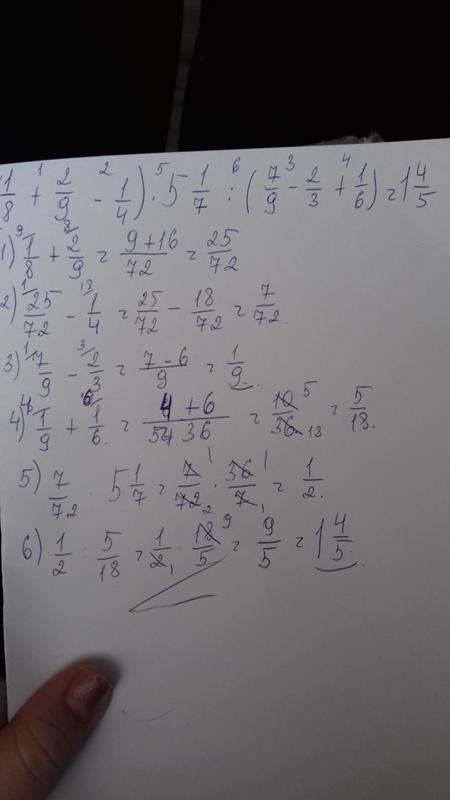 (1/8 + 2/9 - 1/4) · 5 1/7 : (7/9 - 2/3 + 1/6) = 1 4/5
1) 1/8 + 2/9 = 9+16/72 = 25/72
2) 25/72 - 1/4 = 25/72 - 18/72 = 7/72.
3) 7/9 - 2/3 = 7-6/9 = 1/9.
4) 1/9 + 1/6 = 4+6/36 = 10/36 = 5/18.
5) 7/72 · 5 1/7 = 7/72 · 36/7 = 1/2.
6) 1/2 : 5/18 = 1/2 · 18/5 = 9/5 = 1 4/5.